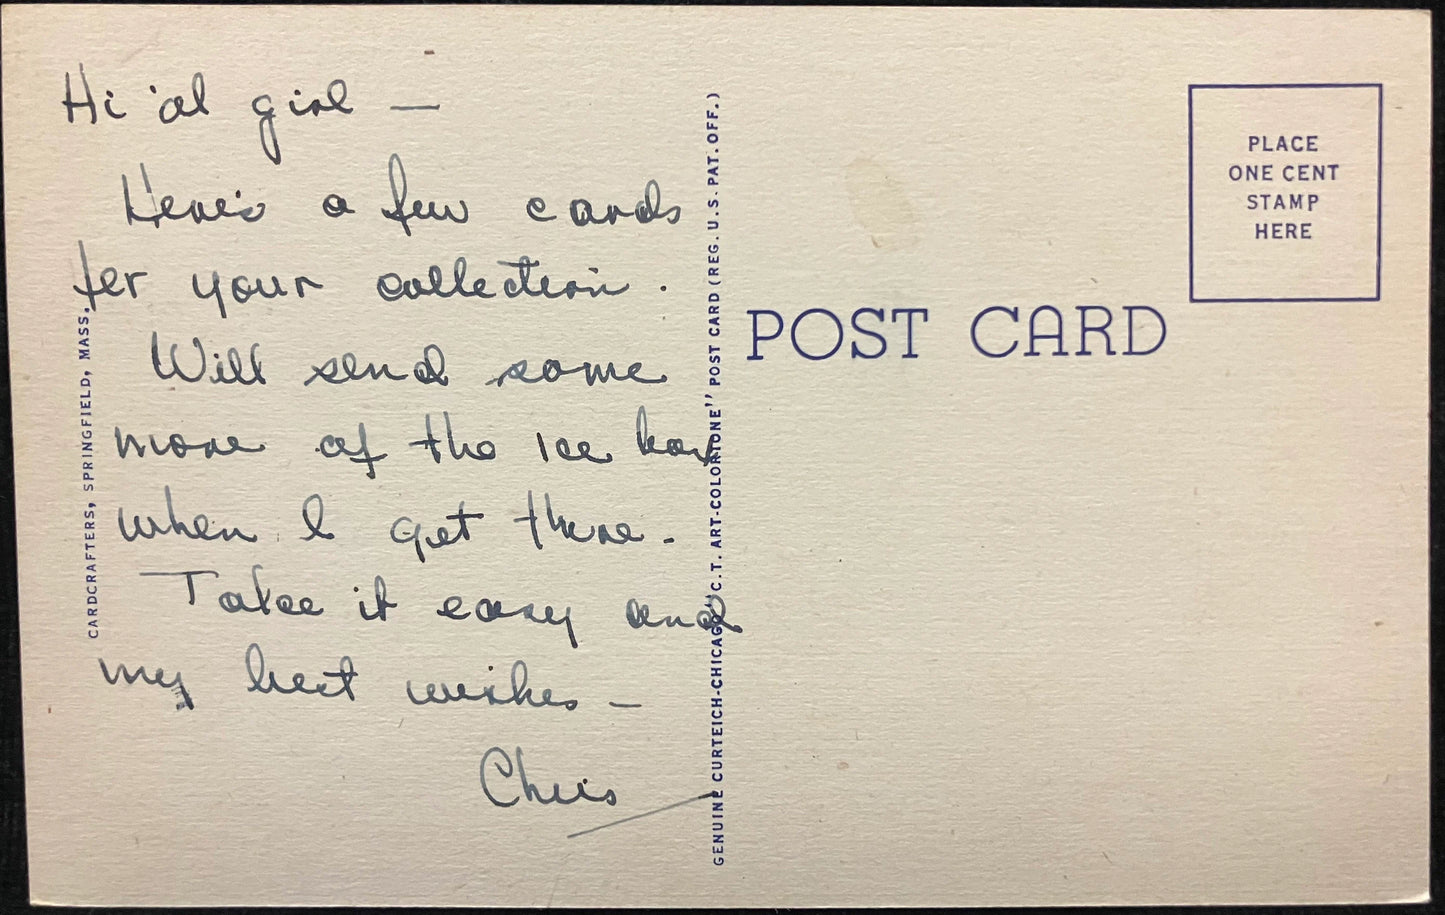 Hi 'ol girl —
Here's a few cards
for your collection.
Will send some
more of the Ice box
when I get there.
Take it easy and
my best wishes —
Chris
CARDCRAFTERS, SPRINGFIELD, MASS.
GENUINE CURTEICH-CHICAGO "C.T. ART-COLORTONE" POST CARD (REG. U.S. PAT. OFF.)
POST CARD
PLACE
ONE CENT
STAMP
HERE